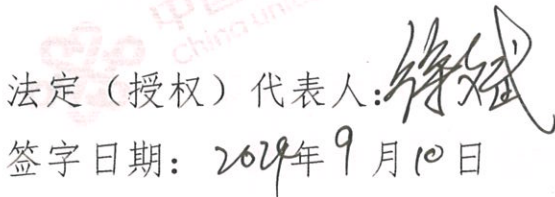 中
China uni
法定（授权）代表人:徐斌
签字日期：2024年9月10日